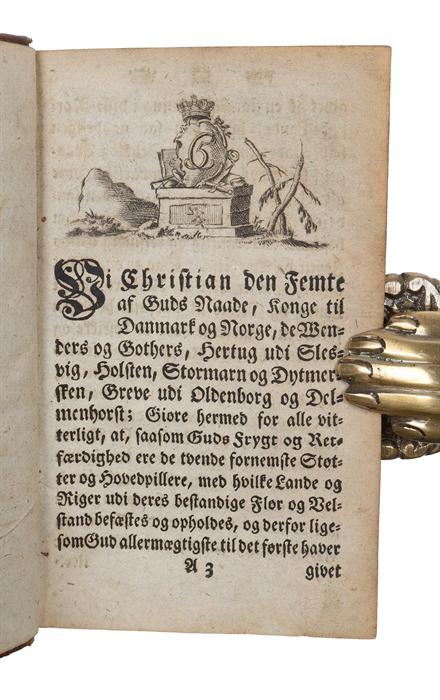 6
Vi Christian den Femte
af Guds Naade, Konge til
Danmark og Norge, de Wen-
ders og Gothers, Hertug udi Sles-
vig, Holsten, Stormarn og Dytmer-
sken, Greve udi Oldenborg og Del-
menhorst; Giøre hermed for alle vit-
terligt, at, saasom Guds Frygt og Ret-
færdighed ere de tvende fornemste Støt-
ter og Hovedpillere, med hvilke Lande og
Riger udi deres bestandige Flor og Vel-
stand befæstes og opholdes, og derfor lige-
som Gud allermægtigste til det første haver
A 3 givet